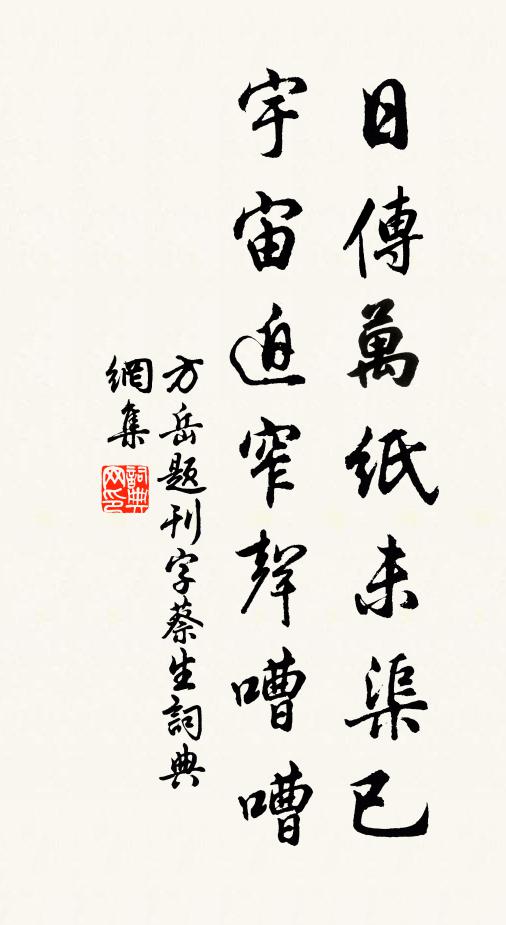 日傳萬紙未渠已
宇宙迫窄聲嘈嘈
方岳題刊字蔡生詞典
網集
詞典網印